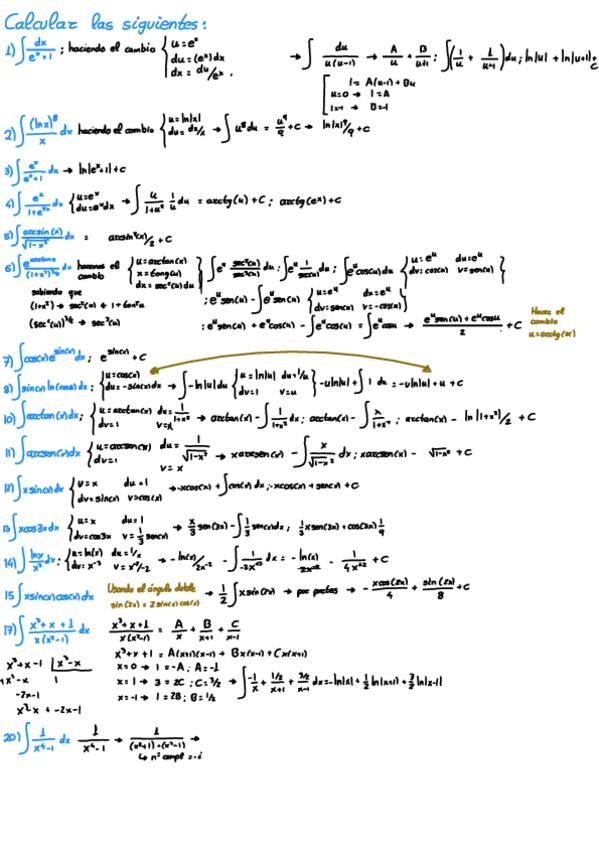 Calcular las siguientes:
1) ∫ dx/(eˣ+1) ; haciendo el cambio { u=eˣ du=(eˣ)dx dx=du/eˣ , → ∫ du/(u(u-1)) → A/u + B/(u+1) ; ∫(1/u + 1/(u+1))du; ln|u| + ln|u+1|+C
[ 1= A(u-1)+Bu
u=0 → 1=A
2) ∫ (lnx)⁸/x dx haciendo el cambio { u=ln|x| du=dx/x → ∫u⁸du = u⁹/9 +C → ln|x|⁹/9 +C
3) ∫ eˣ/(eˣ+1) dx → ln|eˣ+1|+C
4) ∫ eˣ/(1+e²ˣ) dx { u=eˣ du=eˣdx → ∫ u/(1+u²) 1/u du = arctg(u)+C ; arctg(eˣ)+C
5) ∫ arcsin(x)/√(1-x²) dx = arcsin²(x)/2 +C
6) hacemos el cambio { u=arctan(x) x=tang(u) dx=sec²(u)du
sabiendo que
(1+x²) → sec²(u) = 1+tan²u
(sec²(u))³ᐟ² → sec³(u)
{ u=eᵘ du=eᵘ dv=cos(u) v=sen(u) }
; eᵘsen(u) - ∫eᵘsen(u) { u=eᵘ du=eᵘ dv=sen(u) v=-cos(u) }
: eᵘsen(u) + eᵘcos(u) - ∫eᵘcos(u) = ∫eᵘcosu → (eᵘsen(u)+eᵘcosu)/2 +C
Hacer el cambio u=arctg(x)
7) ∫cos(x)e^sin(x) dx ; e^sin(x) +C
8) ∫sinx ln(cosx) dx; { u=cos(x) du=-sin(x)dx → ∫-ln|u|du { u=ln|u| du=1/u dv=1 v=u } -uln|u| + ∫1 du = -uln|u| + u +C
10) ∫arctan(x)dx; { u=arctan(x) du=1/(1+x²) dv=1 v=x → arctan(x) - ∫ 1/(1+x²) dx ; arctan(x) - ∫ x/(1+x²) ; arctan(x) - ln|1+x²|/2 +C
11) ∫arcsen(x)dx { u=arcsen(x) du= 1/√(1-x²) dv=1 v=x → xarcsen(x) - ∫ x/√(1-x²) dx ; xarcsen(x) - √(1-x²) +C
12) ∫xsinx dx { u=x du=1 dv=sinx v=cos(x) → -xcos(x) + ∫cos(x)dx ; -xcos(x) + senx +C
13 ∫xcos3x dx { u=x du=1 dv=cos3x v=1/3 sen(x) → x/3 sen(3x) - ∫1/3 sen(x)dx ; 1/3 xsen(3x) + cos(3x) 1/9
14) ∫ lnx/x³ dx: { u=ln(x) du=1/x dv=x⁻³ v=x⁻²/-2 → -ln(x)/2x⁻²
15 ∫xsin(x)cos(x)dx Usando el ángulo doble sin(2x)=2sin(x)cos(x) → 1/2 ∫xsin(2x) → por partes → -xcos(2x)/4 + sin(2x)/8 +C
17) ∫ (x³+x+1)/(x(x²-1)) dx (x³+x+1)/(x(x²-1)) = A/x + B/(x+1) + C/(x-1)
x³+x-1 | x³-x
x³+x+1 = A(x+1)(x-1) + Bx(x-1) + Cx(x+1)
+x³-x 1
x=0 → 1=-A ; A=-1
-2x-1
x=1 → 3=2C ; C=3/2 → ∫ -1/x + (1/2)/(x+1) + (3/2)/(x-1) dx = -ln|x| + 1/2 ln|x+1| + 3/2 ln|x-1|
x=-1 → 1=2B ; B=1/2
20) ∫ 1/(x⁴-1) dx 1/(x⁴-1) → 1/((x²+1)·(x²-1)) →